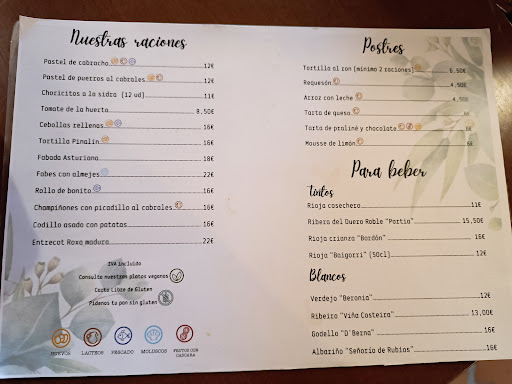 Nuestras raciones
Pastel de cabracho 12€
Pastel de puerros al cabrales 12€
Choricitos a la sidra (12 ud) 11€
Tomate de la huerta 8,50€
Cebollas rellenas 16€
Tortilla Pinalin 16€
Fabada Asturiana 18€
Fabes con almejas 22€
Rollo de bonito 16€
Champiñones con picadillo al cabrales 16€
Codillo asado con patatas 16€
Entrecot Roxa madura 22€
IVA incluido
Consulta nuestros platos veganos
Carta Libre de Gluten
Pídenos tu pan sin gluten
HUEVOS LACTEOS PESCADO MOLUSCOS FRUTOS CON CASCARA
Postres
Tortilla al ron (mínimo 2 raciones) 6,50€
Requesón 4,50€
Arroz con leche 4,50€
Tarta de queso 6€
Tarta de praliné y chocolate 6€
Mousse de limón 6€
Para beber
Tintos
Rioja cosechero 11€
Ribera del Duero Roble "Portia" 15,50€
Rioja crianza "Bordón" 16€
Rioja "Baigorri" (50cl) 12€
Blancos
Verdejo "Beronia" 12€
Ribeiro "Viña Costeira" 13,00€
Godello "D'Berna" 16€
Albariño "Señorío de Rubios" 16€